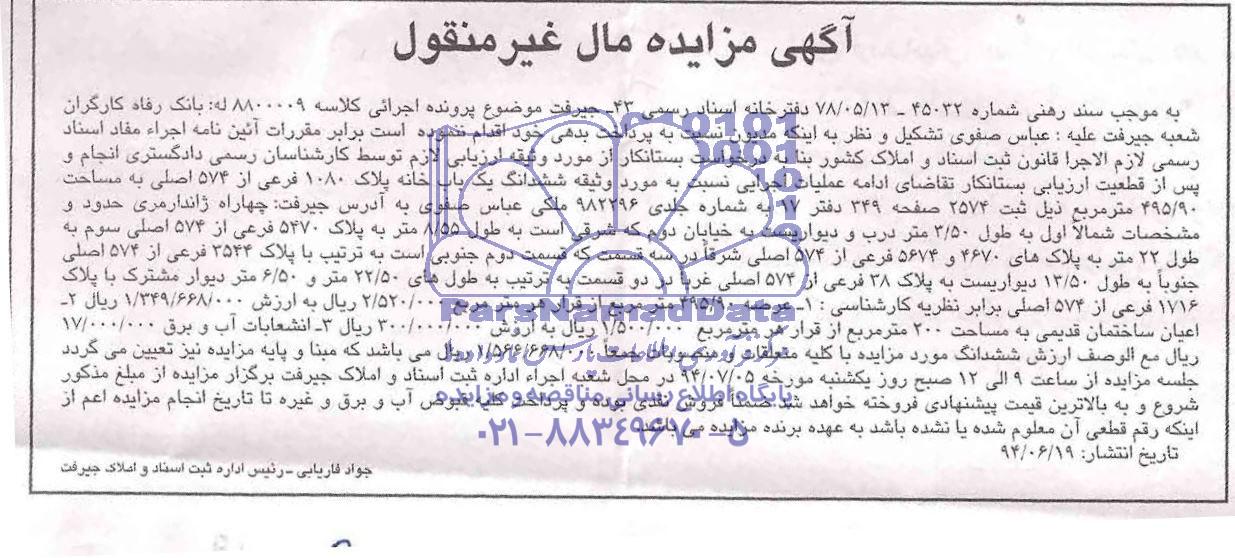 آگهی مزایده مال غیرمنقول
به موجب سند رهنی شماره ۴۵۰۳۲ ـ ۷۸/۰۵/۱۳ دفترخانه اسناد رسمی ۴۳ـ جیرفت موضوع پرونده اجرائی کلاسه ۸۸۰۰۰۰۹ له: بانک رفاه کارگران
شعبه جیرفت علیه : عباس صفوی تشکیل و نظر به اینکه مدیون نسبت به پرداخت بدهی خود اقدام ننموده است برابر مقررات آئین نامه اجراء مفاد اسناد
رسمی لازم الاجرا قانون ثبت اسناد و املاک کشور بنا به درخواست بستانکار از مورد وثیقه ارزیابی لازم توسط کارشناسان رسمی دادگستری انجام و
پس از قطعیت ارزیابی بستانکار تقاضای ادامه عملیات اجرایی نسبت به مورد وثیقه ششدانگ یک باب خانه پلاک ۱۰۸۰ فرعی از ۵۷۴ اصلی به مساحت
۴۹۵/۹۰ مترمربع ذیل ثبت ۲۵۷۴ صفحه ۳۴۹ دفتر ۱۷ به شماره جلدی ۹۸۲۲۹۶ ملکی عباس صفوی به آدرس جیرفت: چهاراه ژاندارمری حدود و
مشخصات شمالاً اول به طول ۳/۵۰ متر درب و دیواریست به خیابان دوم که شرقی است به طول ۸/۵۵ متر به پلاک ۵۴۷۰ فرعی از ۵۷۴ اصلی سوم به
طول ۲۲ متر به پلاک های ۴۶۷۰ و ۵۶۷۴ فرعی از ۵۷۴ اصلی شرقاً در سه قسمت که قسمت دوم جنوبی است به ترتیب با پلاک ۳۵۴۴ فرعی از ۵۷۴ اصلی
جنوباً به طول ۱۳/۵۰ دیواریست به پلاک ۳۸ فرعی از ۵۷۴ اصلی غرباً در دو قسمت به ترتیب به طول های ۲۲/۵۰ متر و ۶/۵۰ متر دیوار مشترک با پلاک
۱۷۱۶ فرعی از ۵۷۴ اصلی برابر نظریه کارشناسی : ۱ـ عرصه ۴۹۵/۹۰ متر مربع از قرار هر متر مربع ۲/۵۲۰/۰۰۰ ریال به ارزش ۱/۳۴۹/۶۶۸/۰۰۰ ریال ۲ـ
اعیان ساختمان قدیمی به مساحت ۲۰۰ مترمربع از قرار هر مترمربع ۱/۵۰۰/۰۰۰ ریال به ارزش ۳۰۰/۰۰۰/۰۰۰ ریال ۳ـ انشعابات آب و برق ۱۷/۰۰۰/۰۰۰
ریال مع الوصف ارزش ششدانگ مورد مزایده با کلیه متعلقات و منصوبات جمعاً ۱/۵۶۶/۶۶۸/۰۰۰ ریال می باشد که مبنا و پایه مزایده نیز تعیین می گردد
جلسه مزایده از ساعت ۹ الی ۱۲ صبح روز یکشنبه مورخه ۹۴/۰۷/۰۵ در محل شعبه اجراء اداره ثبت اسناد و املاک جیرفت برگزار مزایده از مبلغ مذکور
شروع و به بالاترین قیمت پیشنهادی فروخته خواهد شد ضمناً فروش نقدی بوده و پرداخت کلیه قبوض آب و برق و غیره تا تاریخ انجام مزایده اعم از
اینکه رقم قطعی آن معلوم شده یا نشده باشد به عهده برنده مزایده می باشد.
تاریخ انتشار: ۹۴/۰۶/۱۹
جواد فاریابی ـ رئیس اداره ثبت اسناد و املاک جیرفت
FarsNamadData
پایگاه اطلاع رسانی مناقصه و مزایده
۰۲۱-۸۸۳۴۹۶۷۰-۵